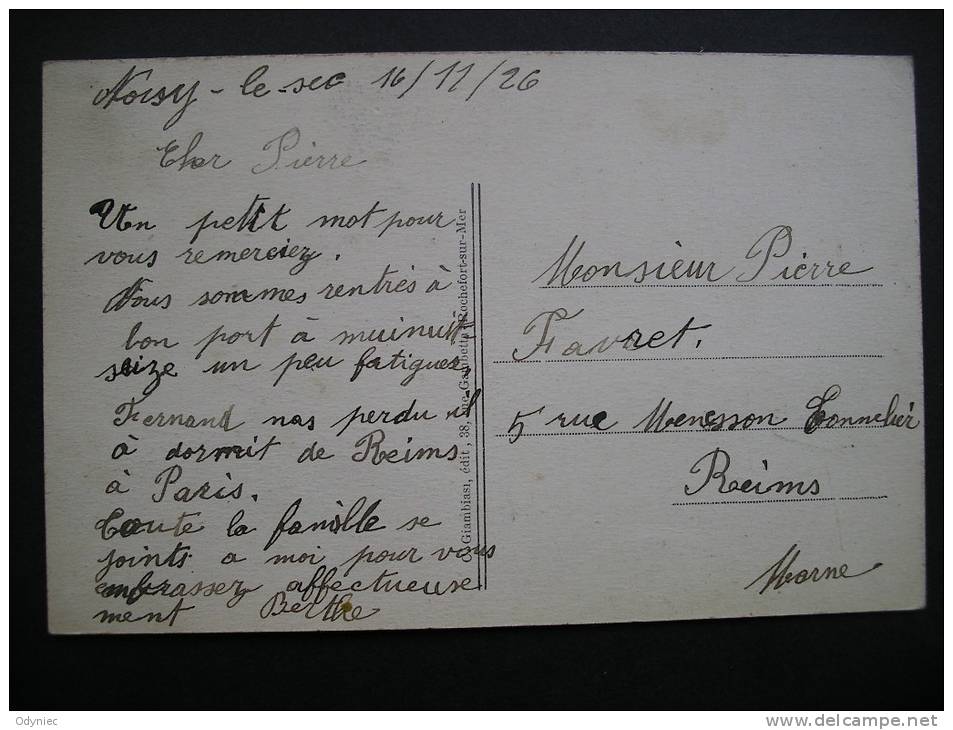 Noisy-le-sec 16/11/26
Cher Pierre
Un petit mot pour
vous remerciez.
Nous sommes rentrés à
bon port à muinuit
seize un peu fatiguez,
Fernand nas perdu il
à dormit de Reims
à Paris.
Toute la famille se
joints a moi pour vous
embrassez affectueuse
ment Berthe
C. Giambiasi, édit, 38, rue Gambetta, Rochefort-sur-Mer
Monsieur Pierre
Favret.
5 rue Menesson Tonnelier
Reims
Marne
Odyniec
http://www.delcampe.net